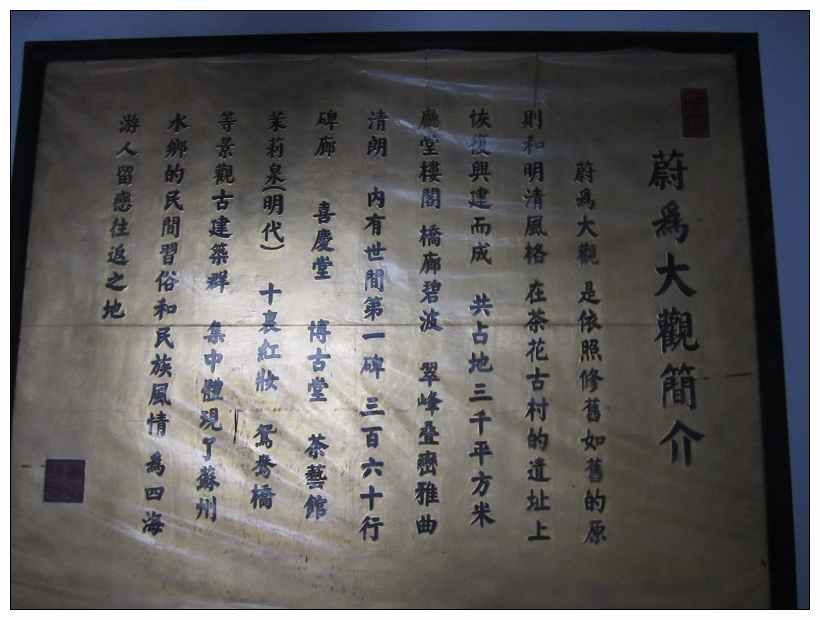 蔚為大觀簡介
蔚為大觀 是依照修舊如舊的原
則和明清風格 在茶花古村的遺址上
恢復興建而成 共占地三千平方米
廳堂樓閣 橋廊碧波 翠峰叠巒雅曲
清朗 內有世間第一碑 三百六十行
碑廊 喜慶堂 博古堂 茶藝館
茉莉泉(明代) 十裏紅妝 鴛鴦橋
等景觀古建築群 集中體現了蘇州
水鄉的民間習俗和民族風情 為四海
游人留戀往返之地